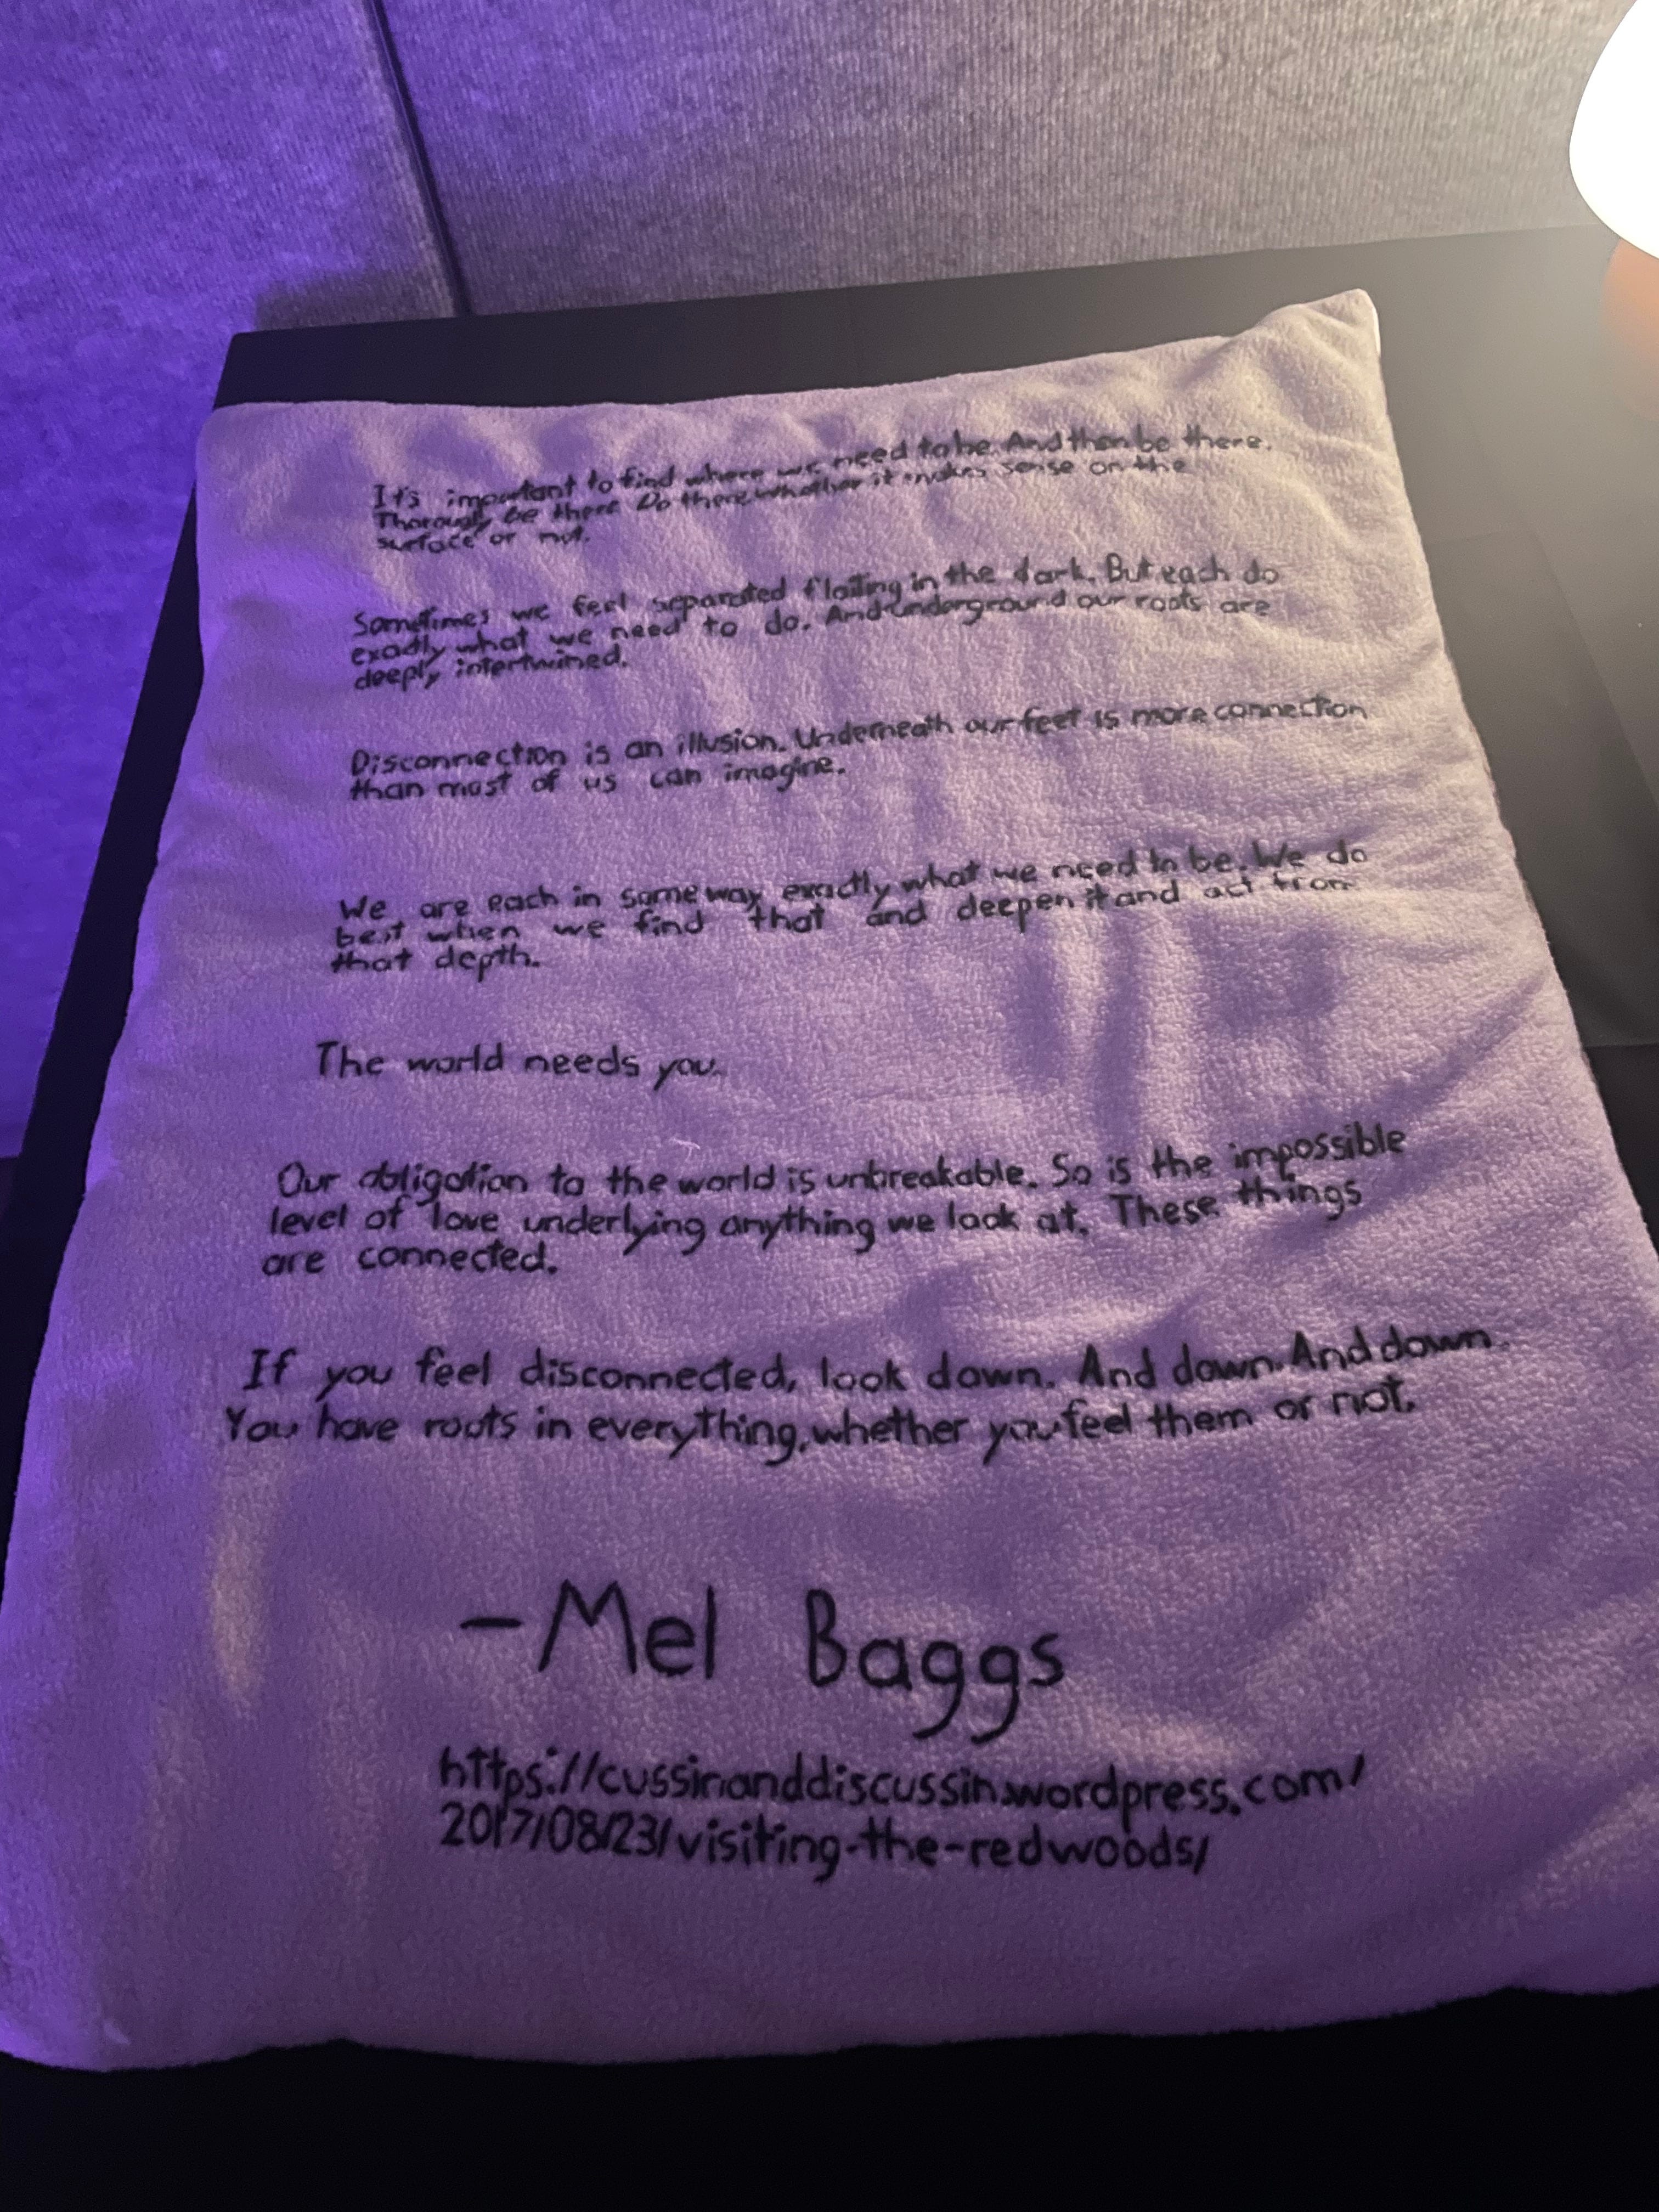 It's important to find where we need to be. And then be there.
Thorougly be there Do there whether it makes sense on the
surface or not.
Sometimes we feel separated flailing in the dark. But each do
exactly what we need to do. And underground our roots are
deeply intertwined.
Disconnection is an illusion. Underneath our feet is more connection
than most of us can imagine.
We are each in some way exactly what we need to be. We do
best when we find that and deepen it and act from
that depth.
The world needs you.
Our obligation to the world is unbreakable. So is the impossible
level of love underlying anything we look at. These things
are connected.
If you feel disconnected, look down. And down. And down.
You have roots in everything, whether you feel them or not.
-Mel Baggs
https://cussinanddiscussin.wordpress.com/
2017/08/23/visiting-the-redwoods/